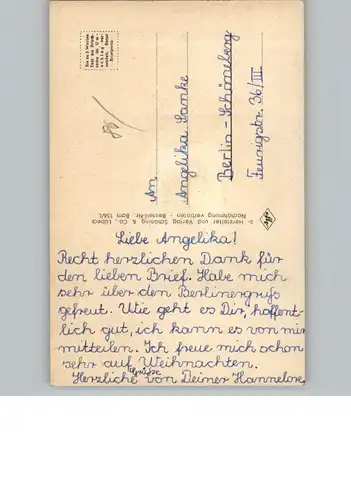 An
Angelika Sanke
Berlin-Schöneberg
Feurigstr. 36/III
Hersteller und Verlag Schöning & Co., Lübeck
Nachahmung verboten - Bestell-Nr.
Liebe Angelika!
Recht herzlichen Dank für
den lieben Brief. Habe mich
sehr über den Berlinergruß
gefreut. Wie geht es Dir, hoffent-
lich gut, ich kann es von mir
mitteilen. Ich freue mich schon
sehr auf Weihnachten.
Herzliche Grüße von Deiner Hannelore.